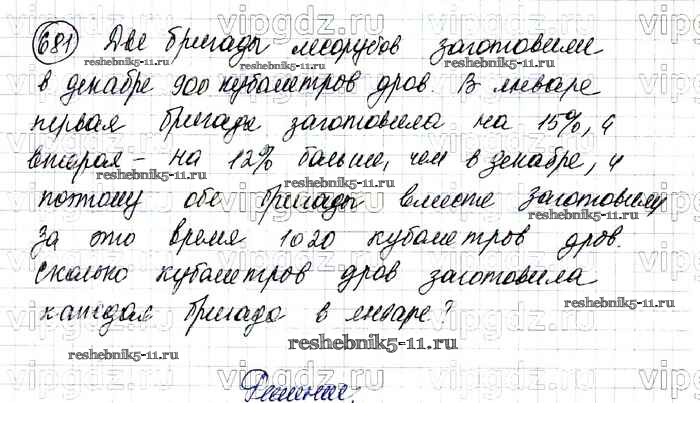 681 Две бригады лесорубов заготовили
в декабре 900 кубометров дров. В январе
первая бригада заготовила на 15%, а
вторая – на 12% больше, чем в декабре, и
поэтому обе бригады вместе заготовили
за это время 1020 кубометров дров.
Сколько кубометров дров заготовила
каждая бригада в январе?
Решение.
vipgdz.ru
reshebnik5-11.ru